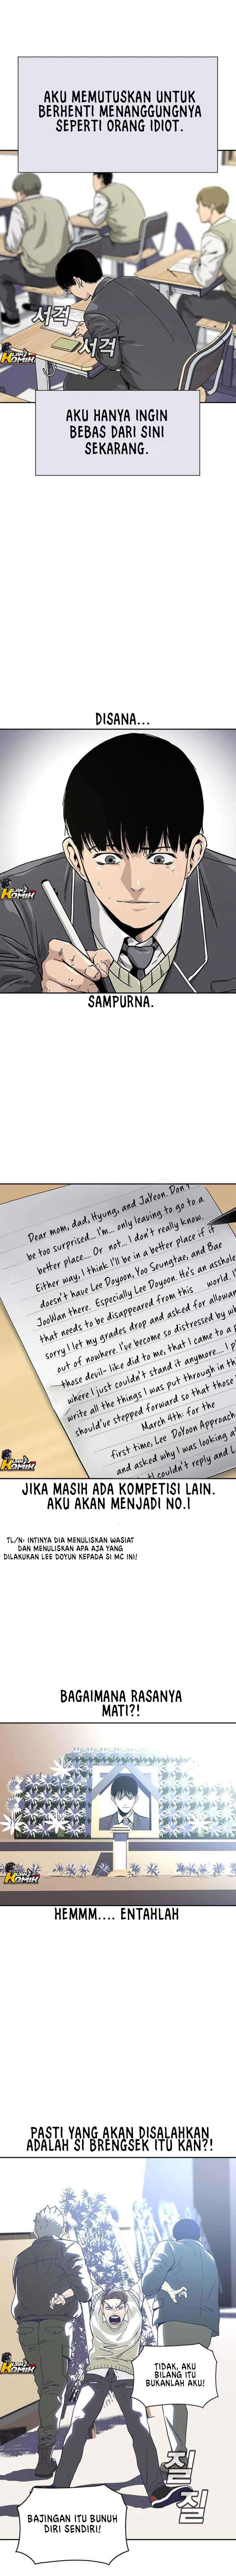 AKU MEMUTUSKAN UNTUK
BERHENTI MENANGGUNGNYA
SEPERTI ORANG IDIOT.
서걱
서걱
KOMIK
AKU HANYA INGIN
BEBAS DARI SINI
SEKARANG.
DISANA...
KOMIK
SAMPURNA.
Dear mom, dad, Hyung, and JaYeon. Don't
be too surprised... I'm... only leaving to go to a
better place.... Or not... I don't really know.
Either way, I think I'll be in a better place if it
doesn't have Lee Doyoon, Yoo Seunghae, and Bae
JooWan there. Especially Lee Doyoon. He's an asshole
that needs to be disappeared from this world. I'm
sorry I let my grades drop and asked for allowan
out of nowhere. I've become so distressed by wh
those devil- like did to me, that I came to a p
where I just couldn't stand it anymore... I p
write all the things I was put through in th
should've stepped forward so that those
March 4th: for the
first time, Lee DoYoon Approach
and asked why I was looking at
I couldn't reply and L
KOMIK
JIKA MASIH ADA KOMPETISI LAIN.
AKU AKAN MENJADI NO.1
TL/N: INTINYA DIA MENULISKAN WASIAT
DAN MENULISKAN APA AJA YANG
DILAKUKAN LEE DOYUN KEPADA SI MC INI!
BAGAIMANA RASANYA
MATI?!
KOMIK
HEMMM.... ENTAHLAH
PASTI YANG AKAN DISALAHKAN
ADALAH SI BRENGSEK ITU KAN?!
KOMIK
TIDAK, AKU
BILANG ITU
BUKANLAH AKU!
질
질
BAJINGAN ITU BUNUH
DIRI SENDIRI!